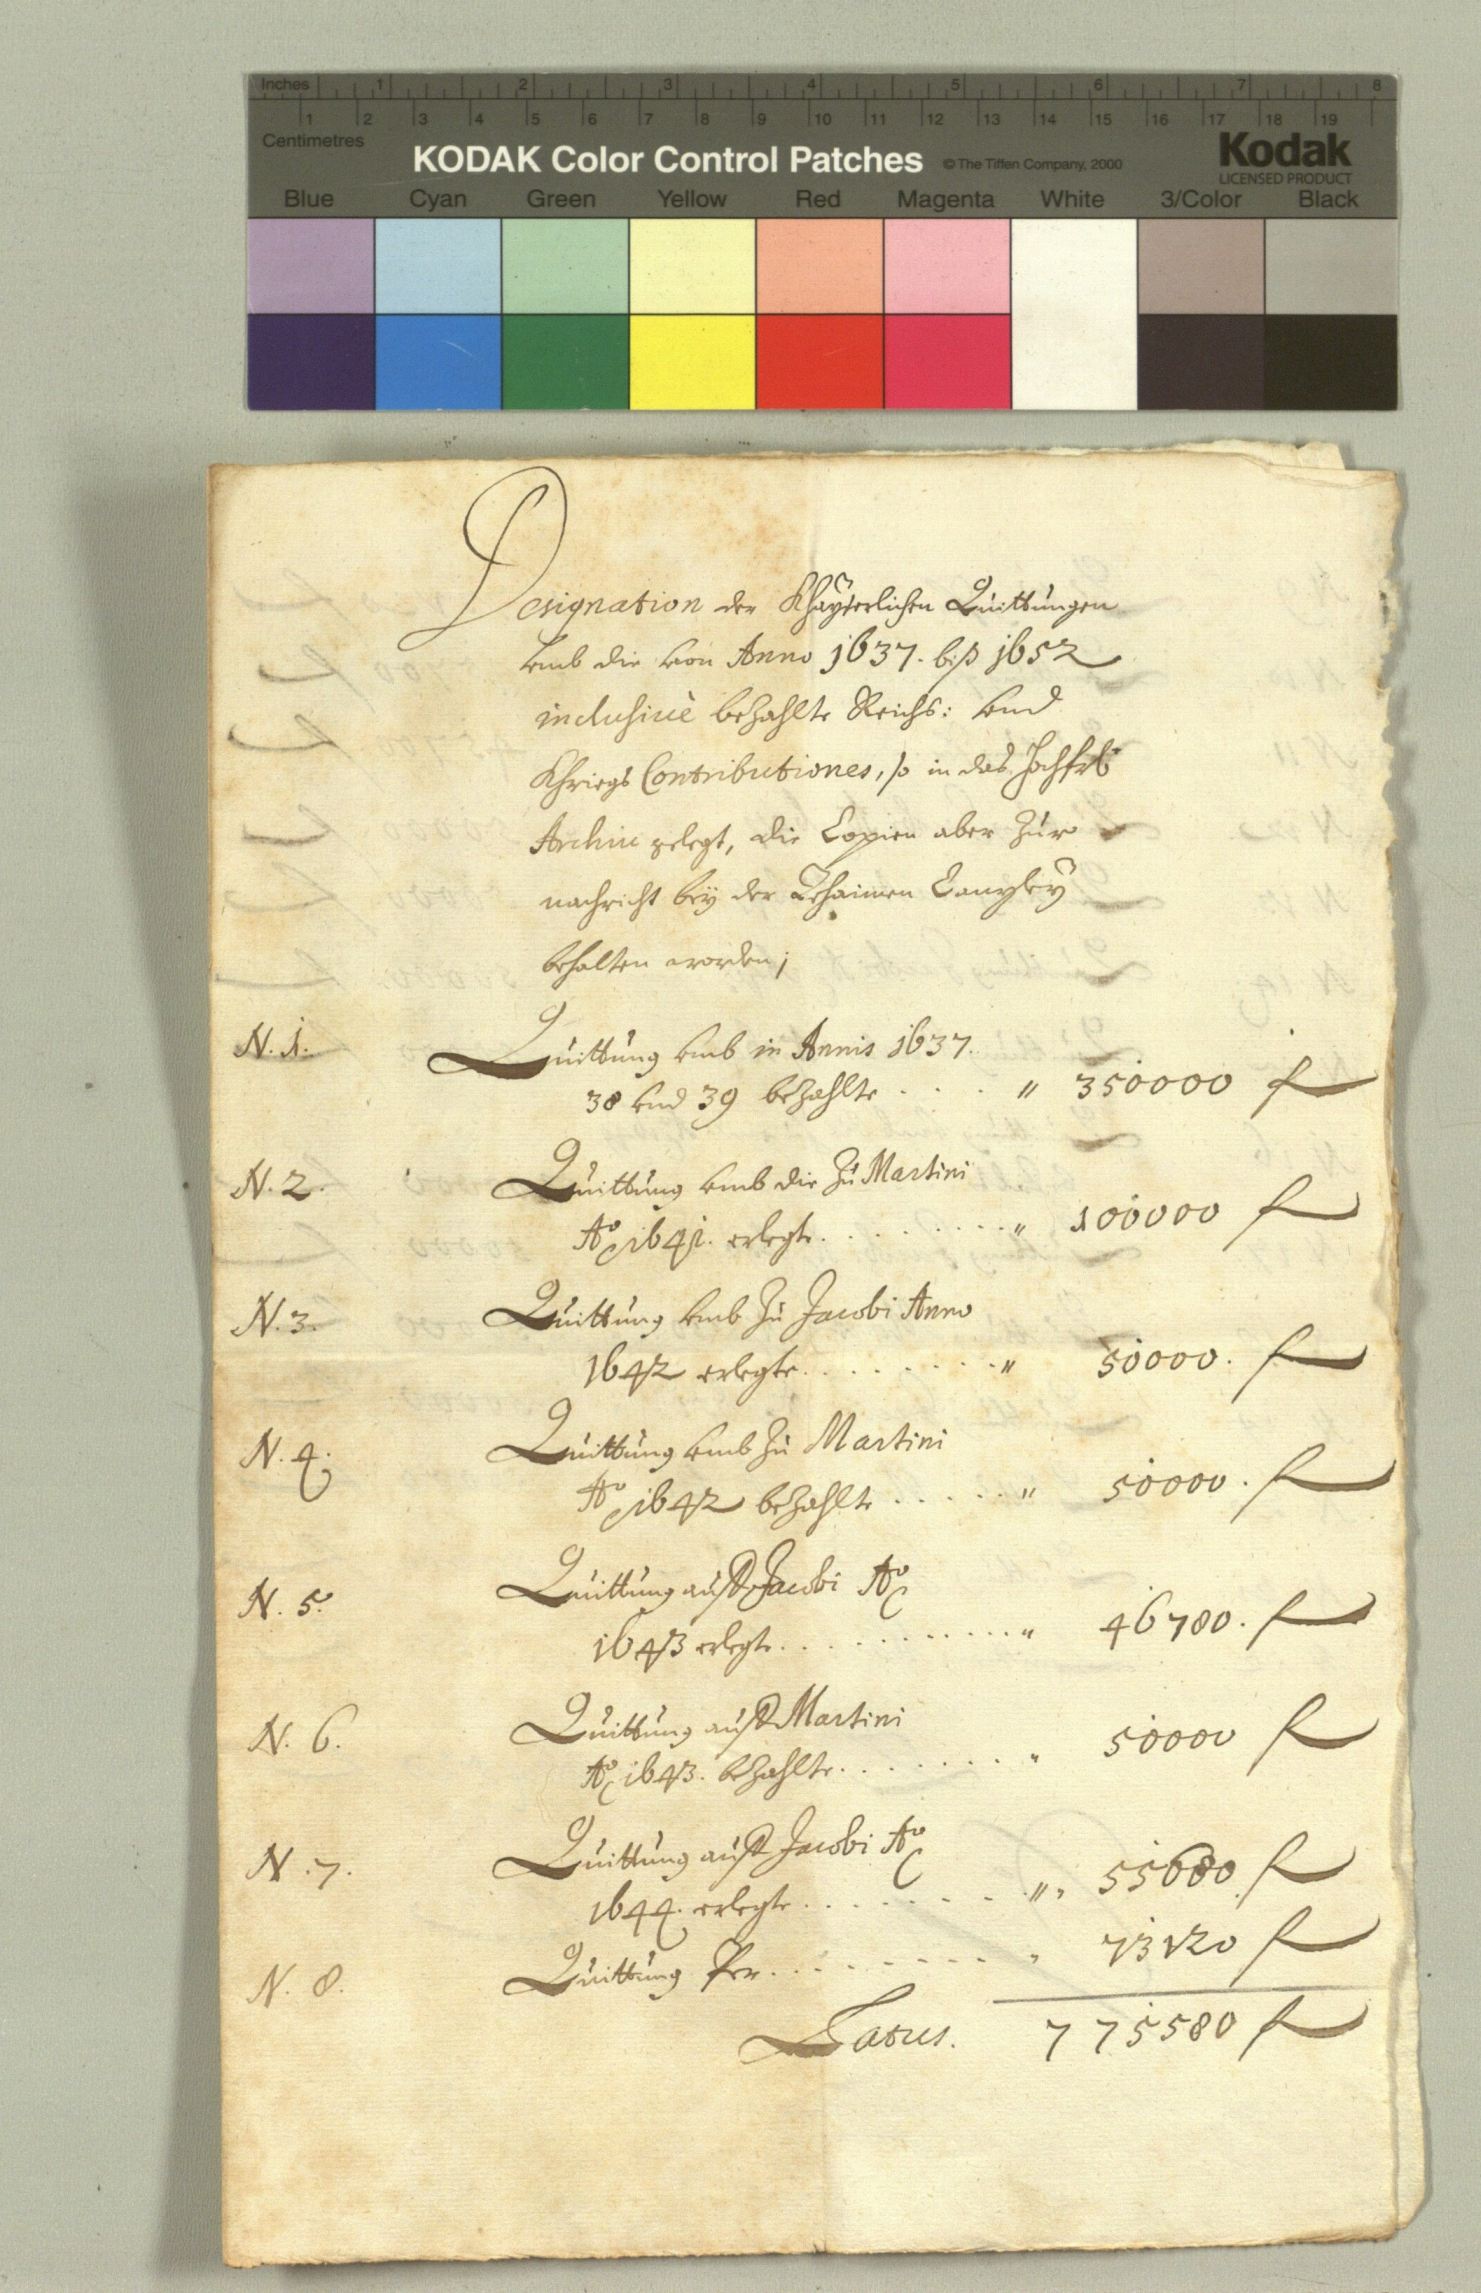 Inches 1 2 3 4 5 6 7 8
1 2 3 4 5 6 7 8 9 10 11 12 13 14 15 16 17 18 19
Centimetres
KODAK Color Control Patches © The Tiffen Company, 2000 Kodak
LICENSED PRODUCT
Blue Cyan Green Yellow Red Magenta White 3/Color Black
Designation der Khaÿserlichen Quittungen
umb die von Anno 1637. biß 1652
inclusivè bezahlte Reichs: und
Khriegs Contributiones, so in das Hochfrl
Archiv gelegt, die Copien aber zur
nachricht beÿ der Gehaimen Canzleÿ
behalten worden;
N. 1. Quittung umb in Annis 1637.
38 und 39 bezahlte . . . . " 350000 f
N. 2. Quittung umb die zu Martini
Ao 1641. erlegte . . . . . . . . " 100000 f
N. 3. Quittung umb zu Jacobi Anno
1642 erlegte . . . . . . . . " 50000. f
N. 4. Quittung umb zu Martini
Ao 1642 bezahlte . . . . . " 50000. f
N. 5. Quittung auff Jacobi Ao
1643 erlegte . . . . . . . . . . . " 46780. f
N. 6. Quittung auff Martini
Ao 1643. bezahlte . . . . . . . " 50000 f
N. 7. Quittung auff Jacobi Ao
1644. erlegte . . . . . . . . " 55680 f
N. 8. Quittung Per . . . . . . . . . " 73120 f
Latus. 775580 f